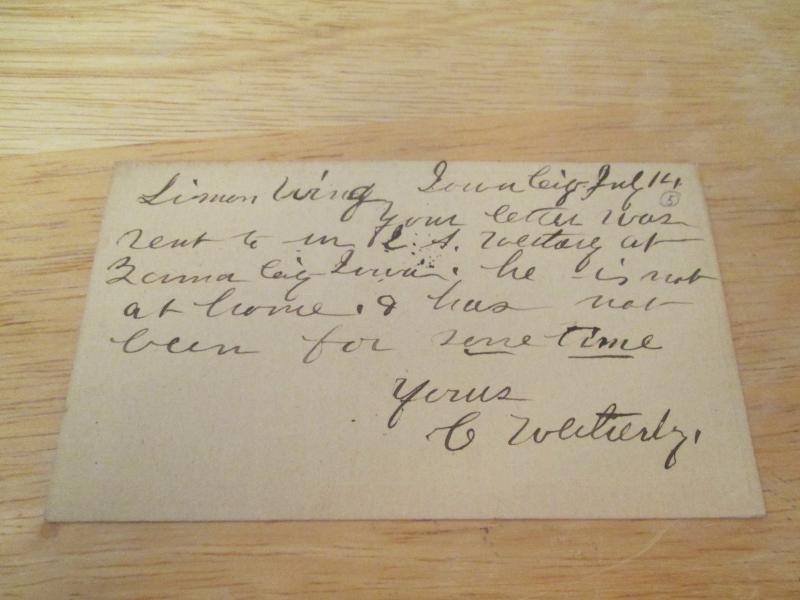 Simon Wing Iowa City July 14
5
your letter was
sent to m L. S. at
City Iowa. he is not
at home. & has not
been for some time
Yours
C Wetherby.